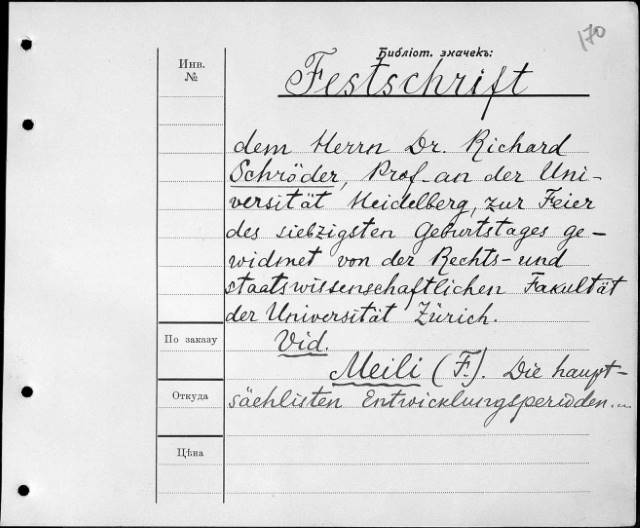 170
Библіот. значекъ:
Инв.
№
Festschrift
dem Herrn Dr. Richard
Schröder, Prof. an der Uni-
versität Heidelberg, zur Feier
des siebzigsten Geburtstages ge-
widmet von der Rechts- und
staatswissenschaftlichen Fakultät
der Universität Zürich.
Vid.
По заказу
Meili (F.). Die haupt-
Откуда
sächlisten Entwicklungsperioden...
Цѣна